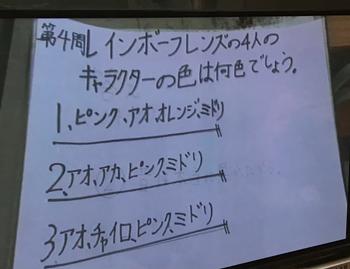 第4問レインボーフレンズの4人の
キャラクターの色は何色でしょう。
1、ピンク、アオ、オレンジ、ミドリ
2、アオ、アカ、ピンク、ミドリ
3アオ、チャイロ、ピンク、ミドリ